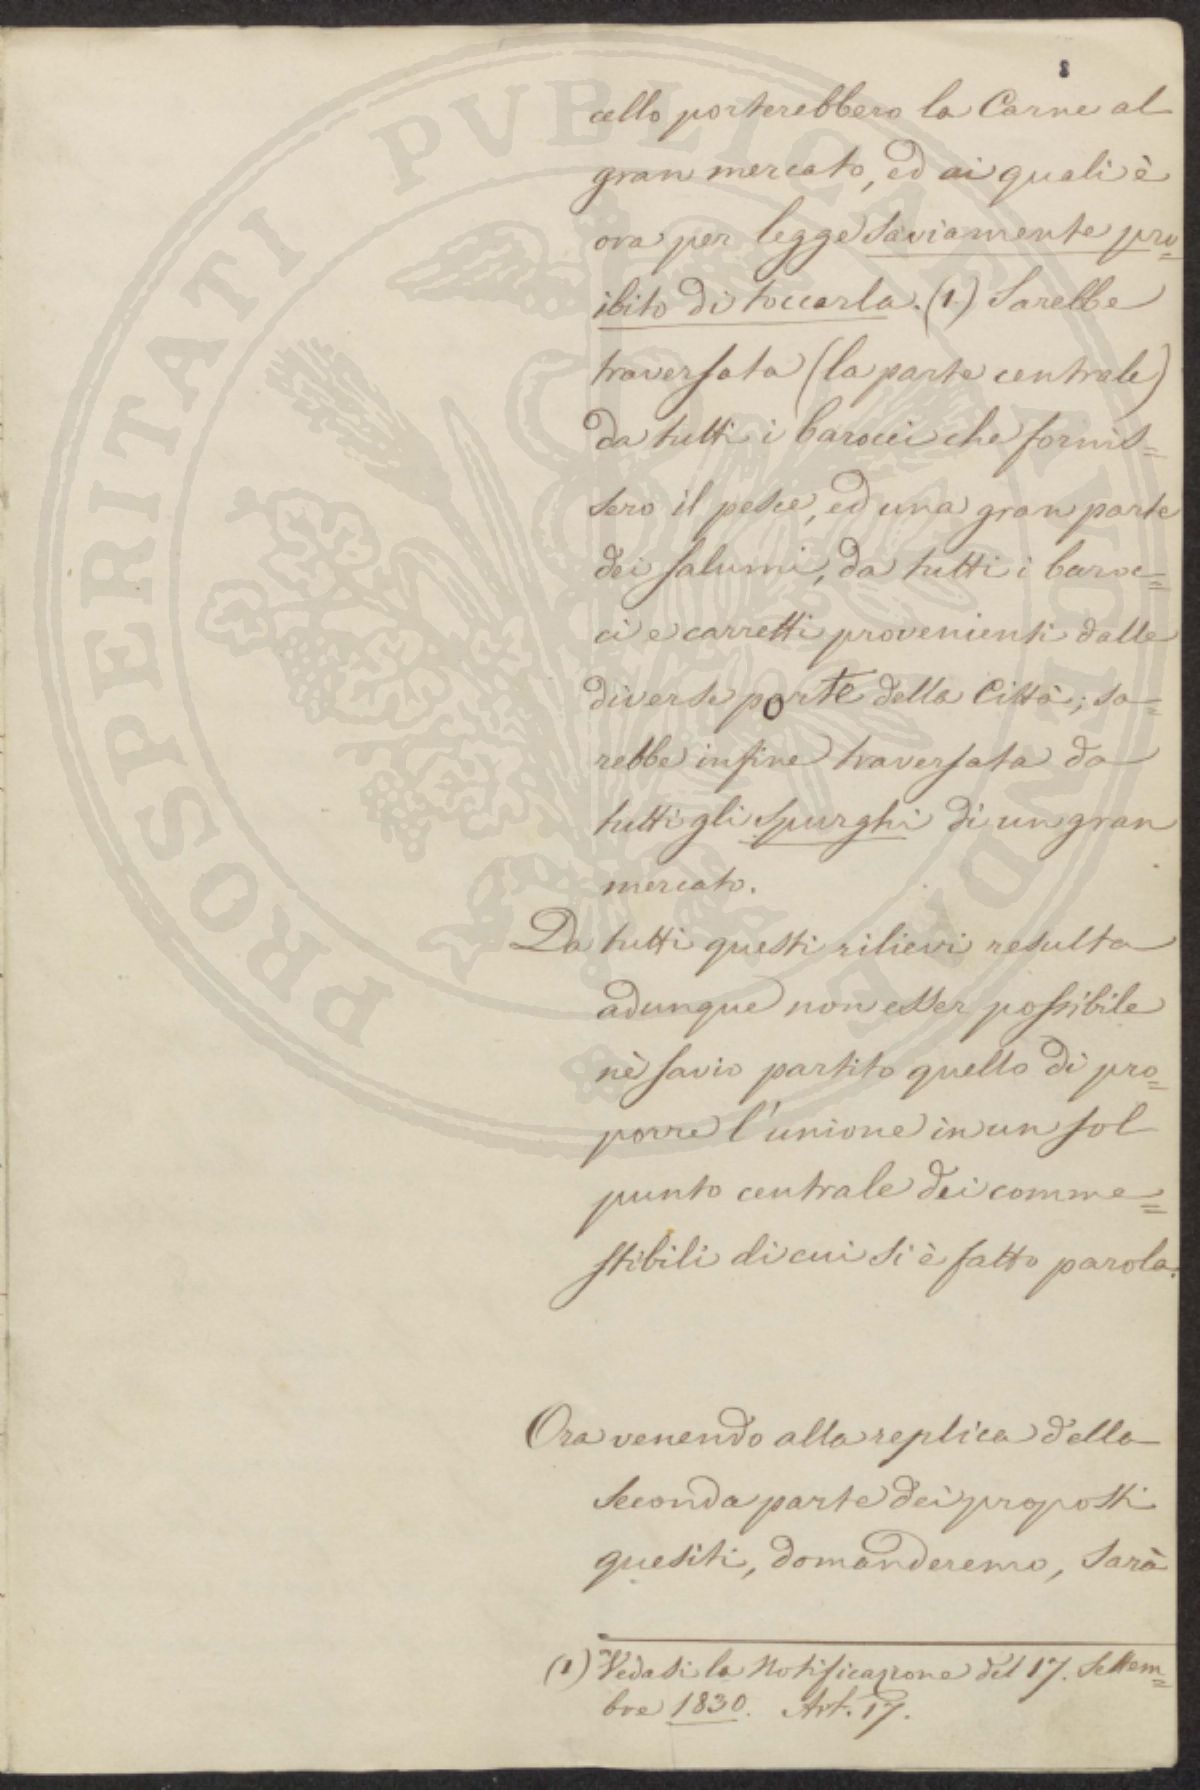 8
cello porterebbero la Carne al
gran mercato, ed ai quali è
ora per legge saviamente pro=
ibito di toccarla. (1) Sarebbe
traversata (la parte centrale)
da tutti i barocci che fornis=
sero il pesce, ed una gran parte
dei salumi, da tutti i baroc=
ci e carretti provenienti dalle
diverse porte della Città; sa=
rebbe infine traversata da
tutti gli spurghi di un gran
mercato.
Da tutti questi rilievi resulta
adunque non esser possibile
nè savio partito quello di pro=
porre l'unione in un sol
punto centrale dei comme=
stibili di cui si è fatto parola.
Ora venendo alla replica della
seconda parte dei proposti
quesiti, domanderemo, sarà
(1) Vedasi la Notificazione del 17. Settem=
bre 1830. Art. 17.
PROSPERITATI PVBLICAE AVGENDAE